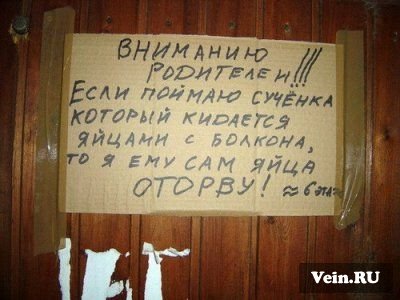 ВНИМАНИЮ
РОДИТЕЛЕЙ!!!
ЕСЛИ ПОЙМАЮ СУЧЁНКА
КОТОРЫЙ КИДАЕТСЯ
ЯЙЦАМИ С БОЛКОНА,
ТО Я ЕМУ САМ ЯЙЦА
ОТОРВУ! ≈ 6 ЭТАЖ
Vein.RU